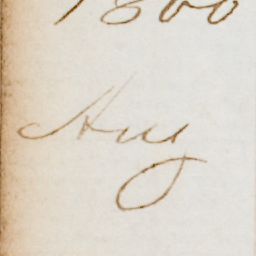 1860
Aug